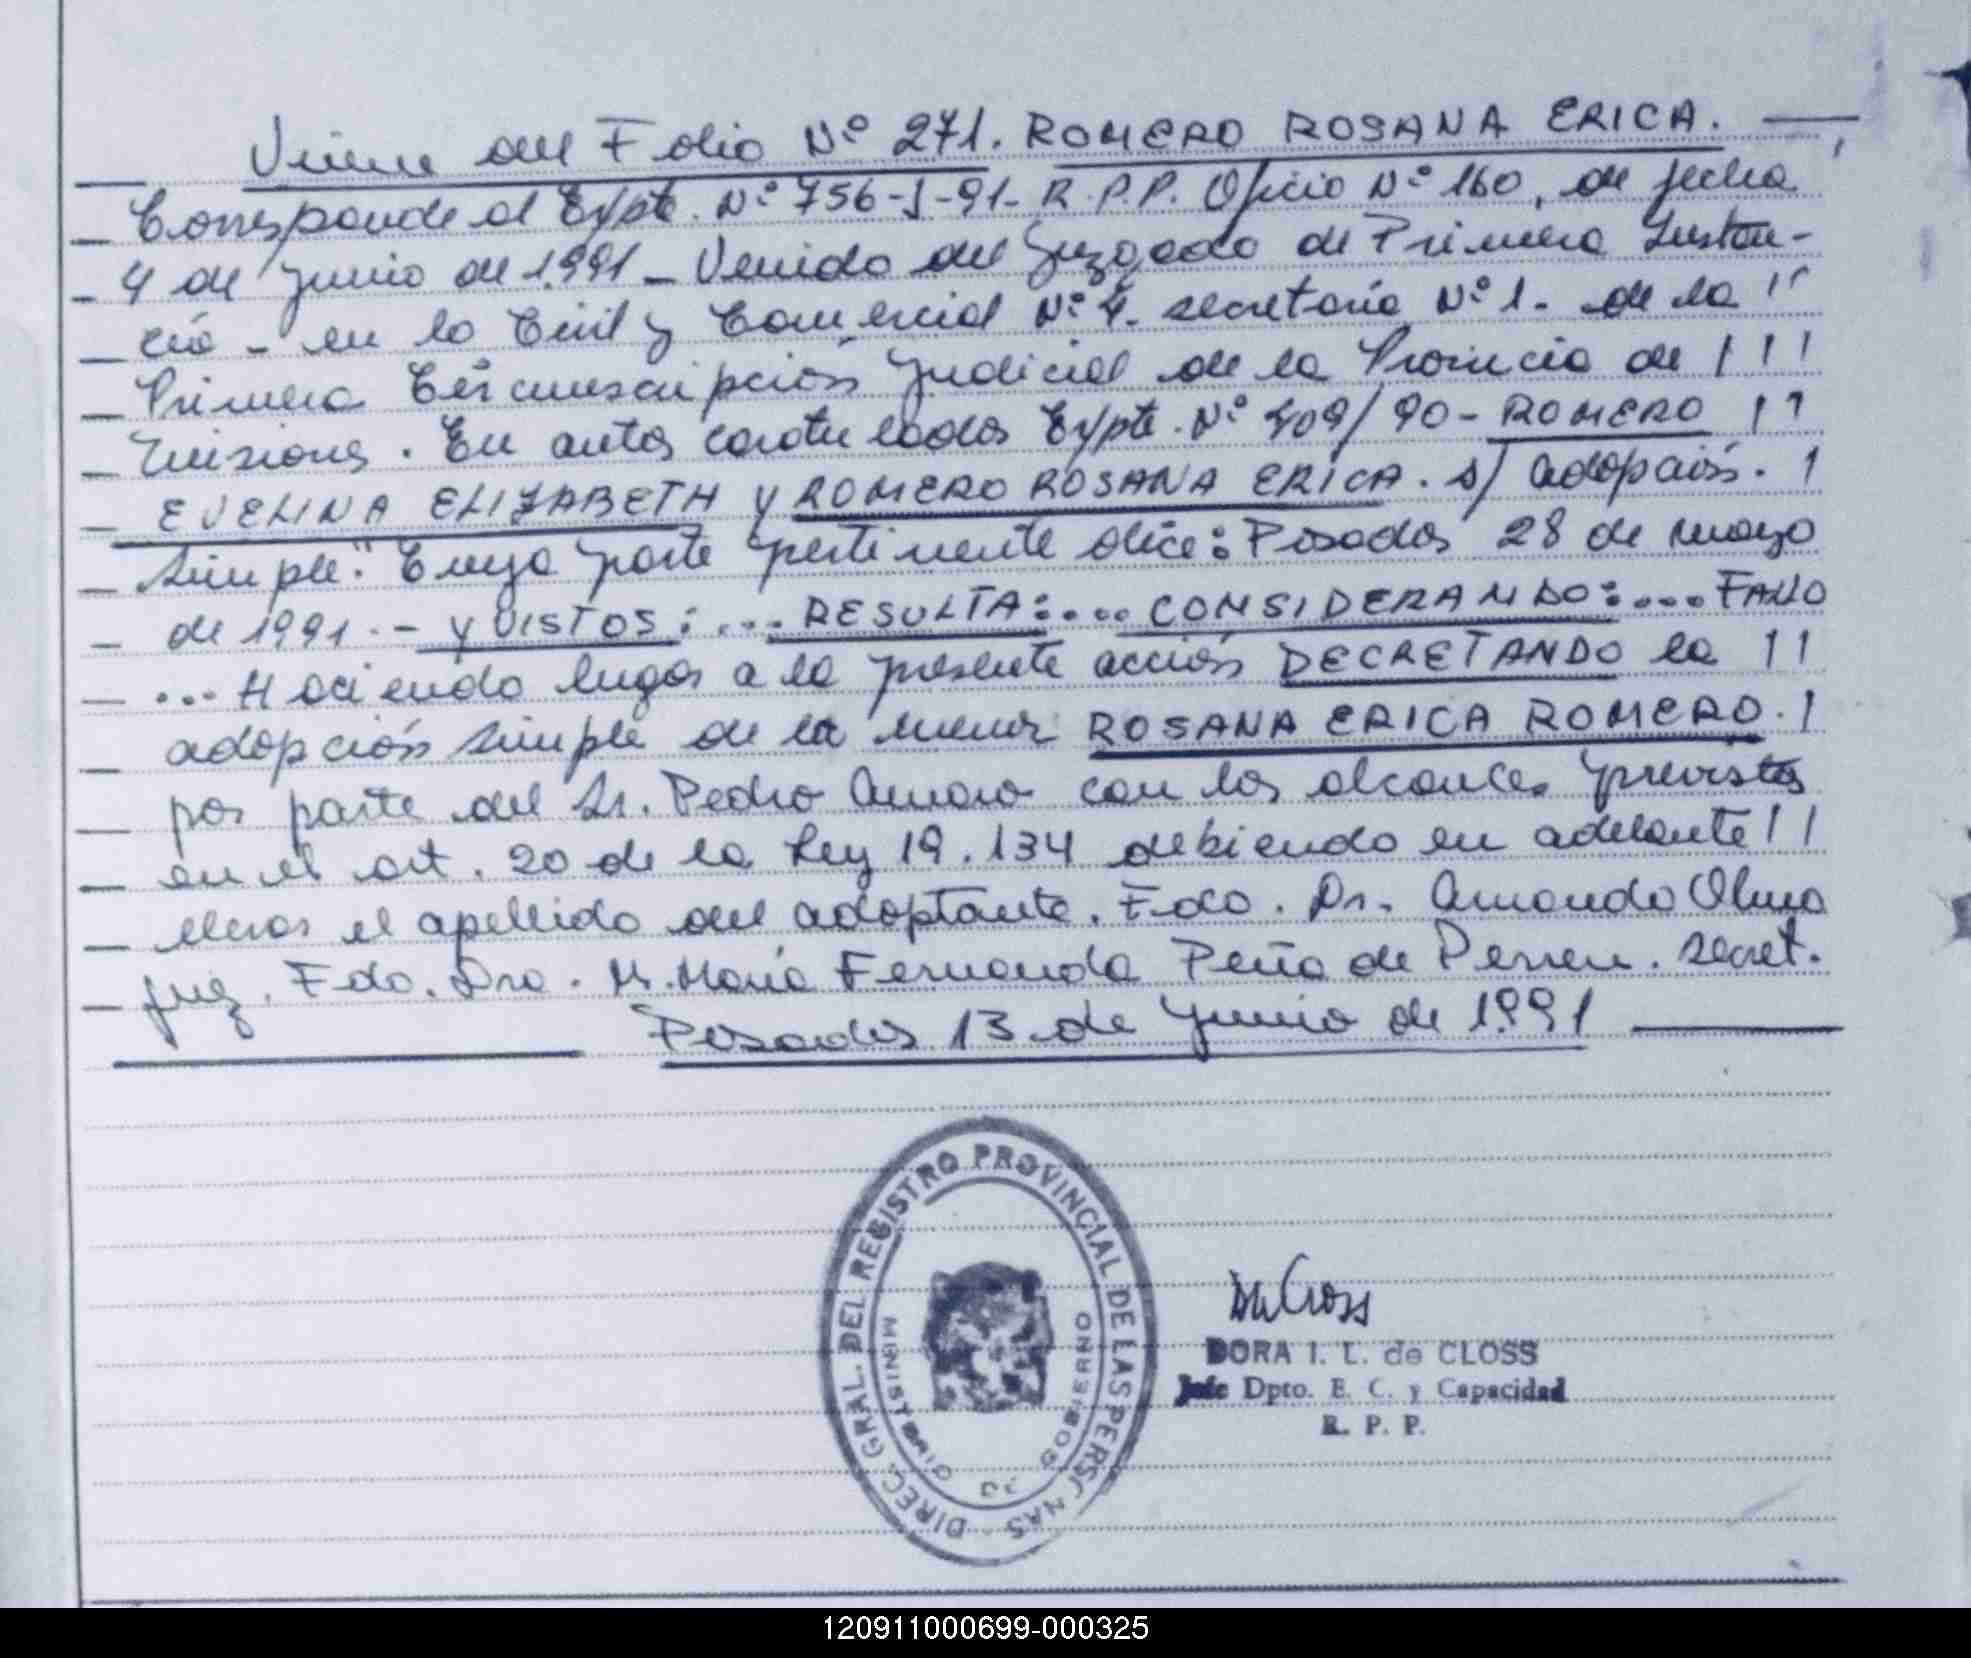 Viene del Folio Nº 271. ROMERO ROSANA ERICA.
Corresponde al Expte. Nº 756-J-91- R.P.P. Oficio Nº 160, de fecha
4 de junio de 1.991 - Venido del Juzgado de Primera Instan-
cia - en lo Civil y Comercial Nº 4. secretaria Nº 1. de la !!
Primera Circunscripción Judicial de la Provincia de ! ! !
Misiones. En autos caratulados Expte. Nº 409/90 - ROMERO ! !
EVELINA ELIZABETH y ROMERO ROSANA ERICA. s/ adopción. !
Simple." Cuya parte pertinente dice: Posadas 28 de mayo
de 1991.- y VISTOS: ... RESULTA: ... CONSIDERANDO: ... FALLO
... Haciendo lugar a la presente acción DECRETANDO la ! !
adopción simple de la menor ROSANA ERICA ROMERO. !
por parte del Sr. Pedro Amaro con los alcances previstos
en el art. 20 de la Ley 19.134 debiendo en adelante ! !
llevar el apellido del adoptante. Fdo. Dr. Armando Olmo
Juez. Fdo. Dra. M. María Fernanda Peña de Perren. Secret.
Posadas 13 de Junio de 1.991
DIREC. GRAL. DEL REGISTRO PROVINCIAL DE LAS PERSONAS
MINISTERIO DE GOBIERNO
DORA I. L. de CLOSS
Jefe Dpto. E. C. y Capacidad
R. P. P.
120911000699-000325